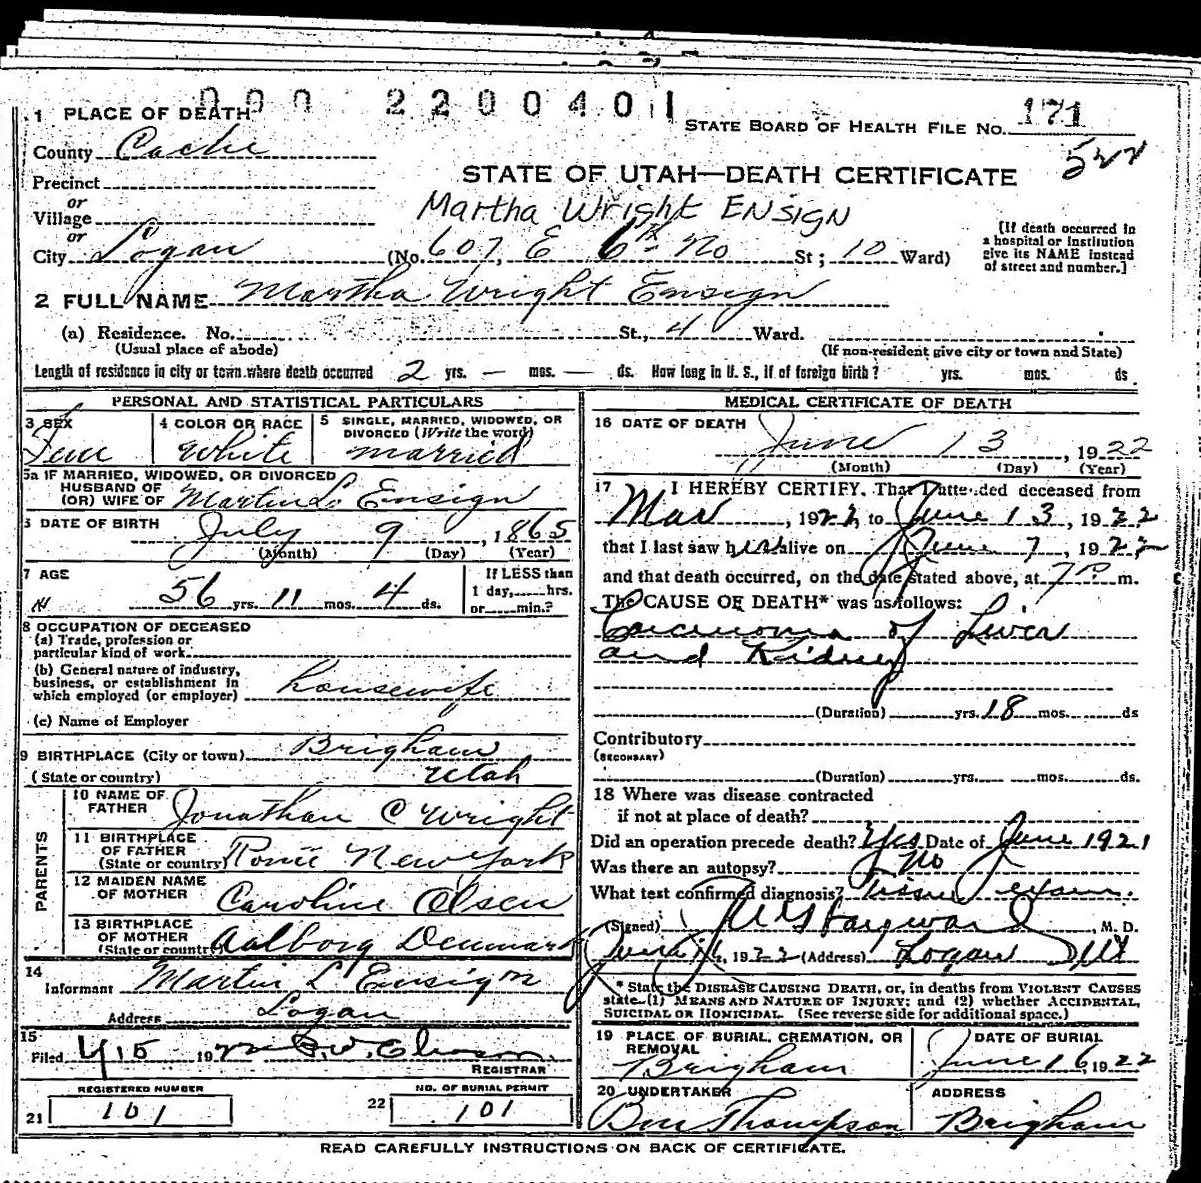 000 2200401
1 PLACE OF DEATH
STATE BOARD OF HEALTH FILE No. 171
County Cache
522
Precinct
STATE OF UTAH—DEATH CERTIFICATE
or
Village
Martha Wright ENSIGN
or
City Logan (No. 607, E 6th No St; 10 Ward)
[If death occurred in
a hospital or institution
give its NAME instead
of street and number.]
2 FULL NAME Martha Wright Ensign
(a) Residence. No. St., 4 Ward.
(Usual place of abode) (If non-resident give city or town and State)
Length of residence in city or town where death occurred 2 yrs. — mos. — ds. How long in U. S., if of foreign birth? yrs. mos. ds
PERSONAL AND STATISTICAL PARTICULARS
3 SEX 4 COLOR OR RACE 5 SINGLE, MARRIED, WIDOWED, OR
DIVORCED (Write the word)
Fem White married
5a IF MARRIED, WIDOWED, OR DIVORCED
HUSBAND OF
(OR) WIFE OF Martin L Ensign
6 DATE OF BIRTH July 9, 1865
(Month) (Day) (Year)
7 AGE
56 yrs. 11 mos. 4 ds.
If LESS than
1 day, hrs.
or min.?
8 OCCUPATION OF DECEASED
(a) Trade, profession or
particular kind of work
(b) General nature of industry,
business, or establishment in
which employed (or employer) housewife
(c) Name of Employer
9 BIRTHPLACE (City or town) Brigham
(State or country) Utah
PARENTS
10 NAME OF
FATHER Jonathan C Wright
11 BIRTHPLACE
OF FATHER
(State or country) Rome New York
12 MAIDEN NAME
OF MOTHER Caroline Olsen
13 BIRTHPLACE
OF MOTHER
(State or country) Aalborg Denmark
14
Informant Martin L Ensign
Address Logan
15
Filed 19
REGISTRAR
REGISTERED NUMBER
21 101
NO. OF BURIAL PERMIT
22 101
MEDICAL CERTIFICATE OF DEATH
16 DATE OF DEATH
June 13, 1922
(Month) (Day) (Year)
17 I HEREBY CERTIFY, That I attended deceased from
Mar, 1922, to June 13, 1922
that I last saw her alive on June 7, 1922
and that death occurred, on the date stated above, at 7 P m.
The CAUSE OF DEATH* was as follows:
Carcinoma of Liver
and Kidney
(Duration) yrs. 18 mos. ds
Contributory
(SECONDARY)
(Duration) yrs. mos. ds.
18 Where was disease contracted
if not at place of death?
Did an operation precede death? Yes Date of June 1921
Was there an autopsy? No
What test confirmed diagnosis? Tissue exam.
(Signed) Hayward, M. D.
1922 (Address) Logan Ut
* State the DISEASE CAUSING DEATH, or, in deaths from VIOLENT CAUSES
state (1) MEANS AND NATURE OF INJURY; and (2) whether ACCIDENTAL,
SUICIDAL OR HOMICIDAL. (See reverse side for additional space.)
19 PLACE OF BURIAL, CREMATION, OR
REMOVAL
Brigham
DATE OF BURIAL
June 16, 1922
20 UNDERTAKER
Ben Thompson
ADDRESS
Brigham
READ CAREFULLY INSTRUCTIONS ON BACK OF CERTIFICATE.